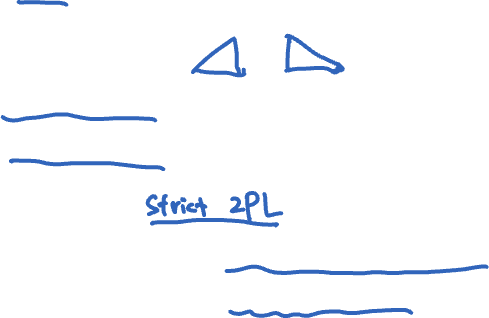 Strict 2PL